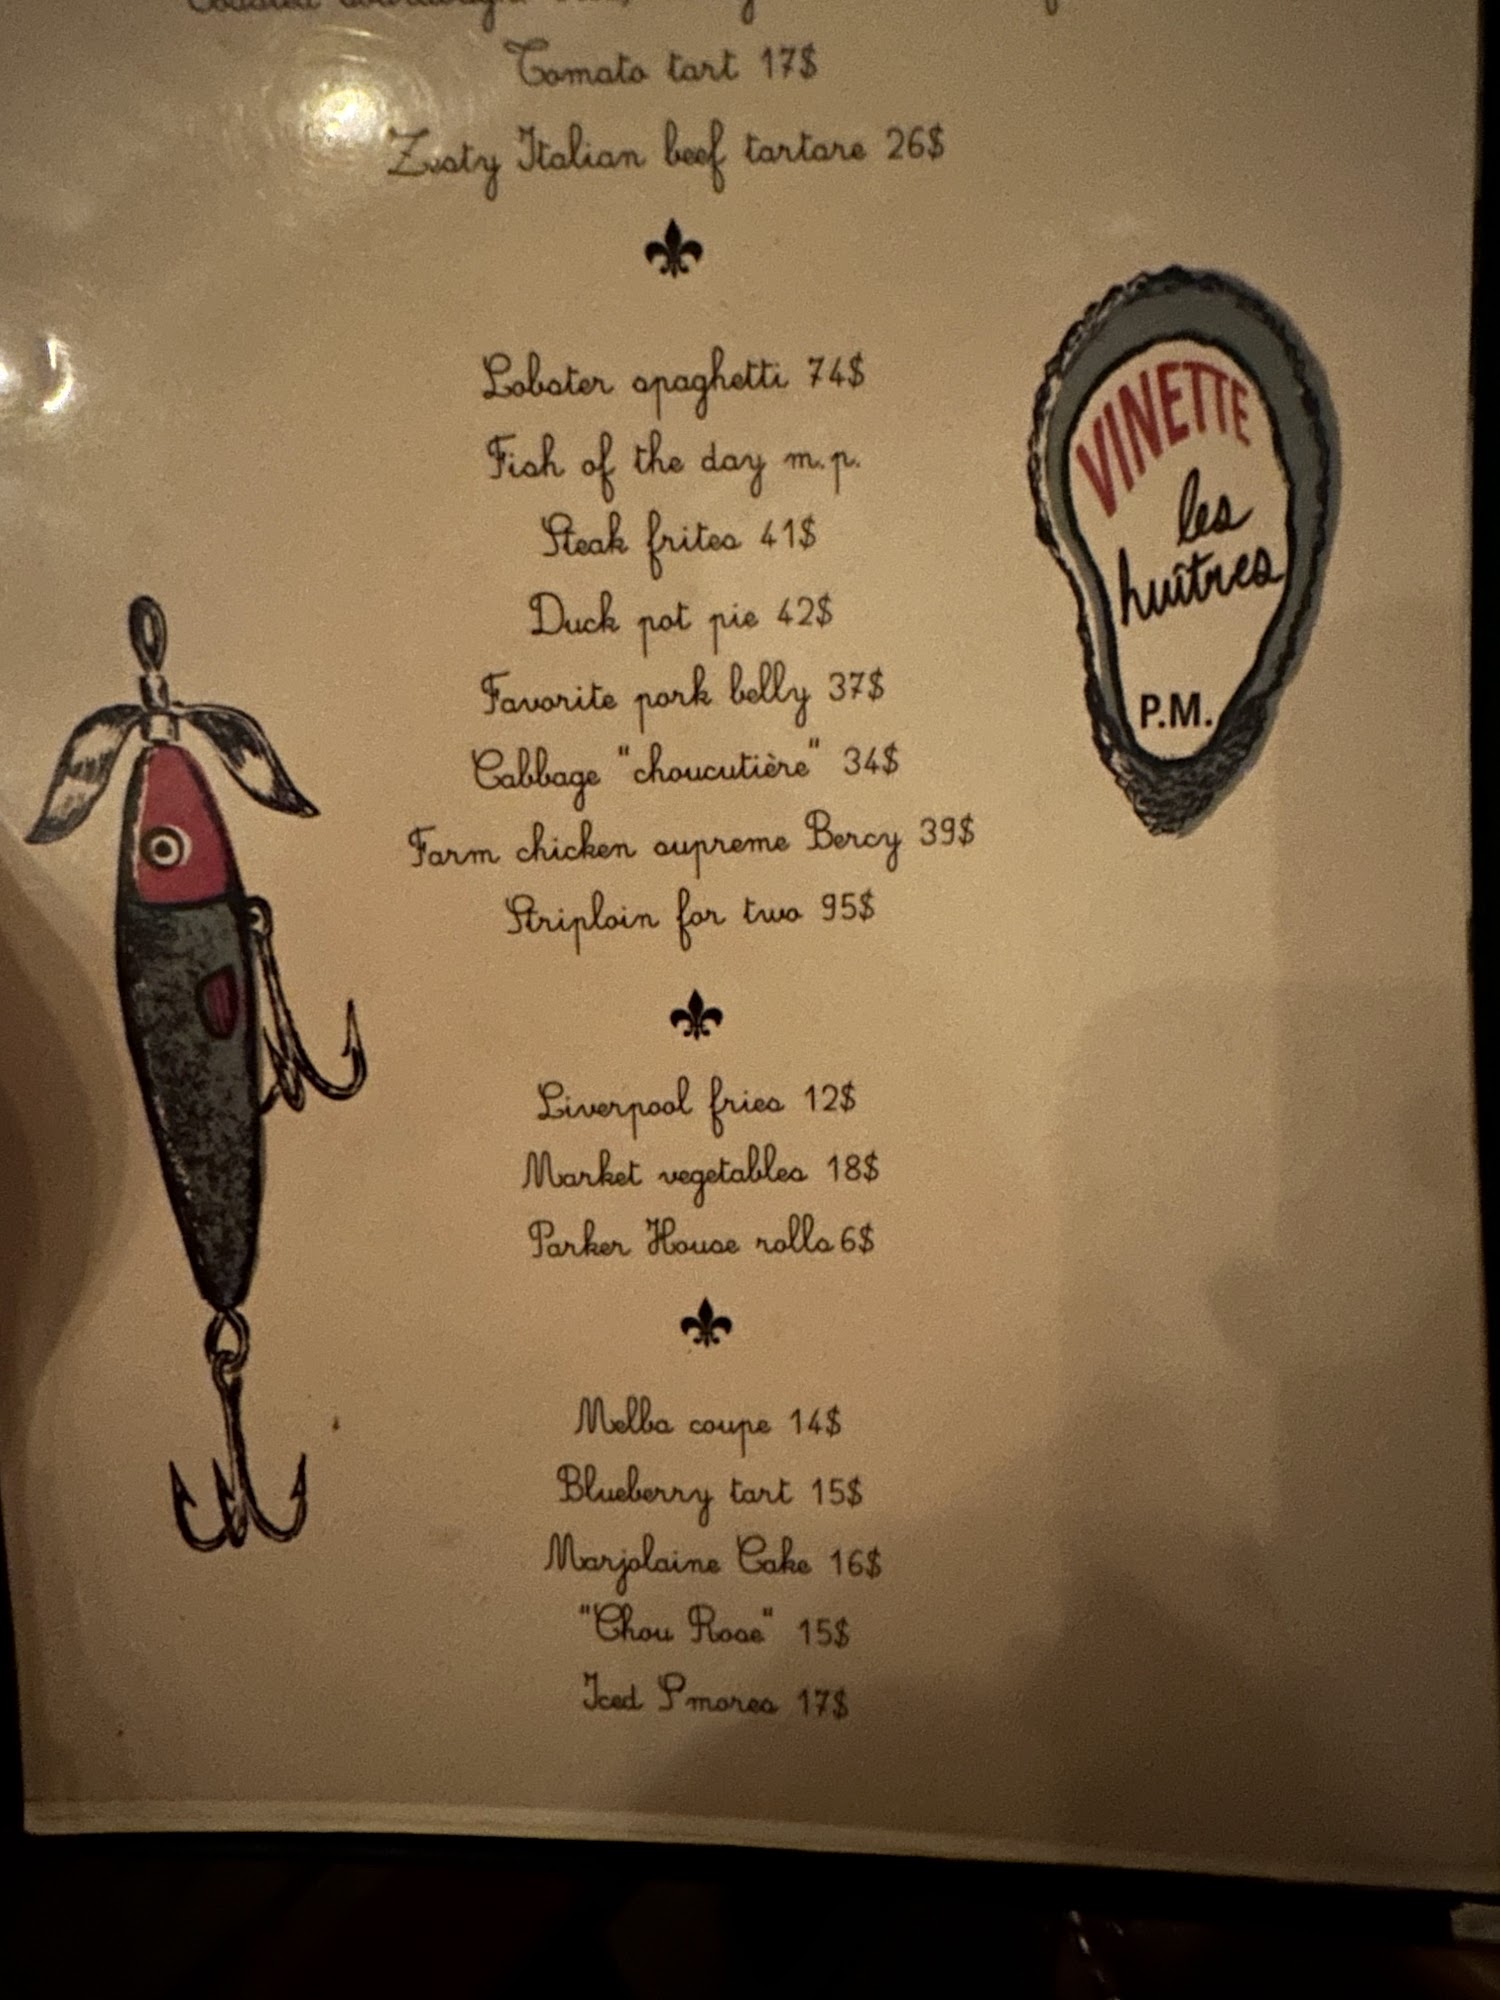 Tomato tart 17$
Zesty Italian beef tartare 26$
Lobster spaghetti 74$
Fish of the day m.p.
Steak frites 41$
Duck pot pie 42$
Favorite pork belly 37$
Cabbage "choucutière" 34$
Farm chicken supreme Bercy 39$
Striploin for two 95$
Liverpool fries 12$
Market vegetables 18$
Parker House rolls 6$
Melba coupe 14$
Blueberry tart 15$
Marjolaine Cake 16$
"Chou Rose" 15$
Iced S'mores 17$
VINETTE
les
huîtres
P.M.